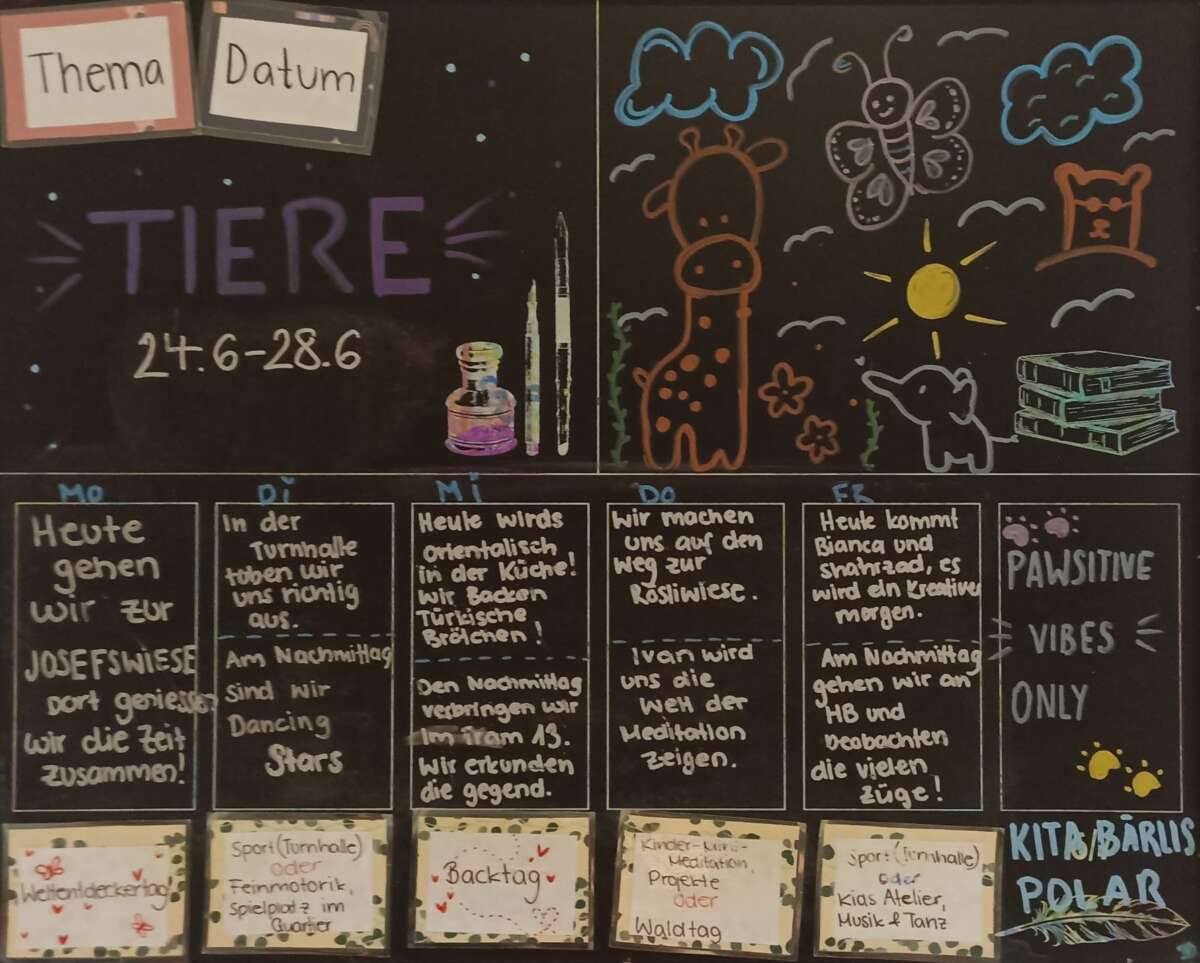 Thema
Datum
TIERE
24.6-28.6
MO
Heute
gehen
wir zur
JOSEFSWIESE
Dort geniessen
wir die Zeit
zusammen!
Weltentdeckertag
Di
In der
Turnhalle
toben wir
uns richtig
aus.
Am Nachmittag
sind wir
Dancing
Stars
Sport (Turnhalle)
oder
Feinmotorik,
Spielplatz im
Quartier
Mi
Heute wirds
orientalisch
in der Küche!
Wir Backen
Türkische
Brötchen!
Den Nachmittag
verbringen wir
im Tram 13.
Wir erkunden
die gegend.
Backtag
DO
Wir machen
uns auf den
Weg zur
Rösliwiese.
Ivan wird
uns die
Welt der
Meditation
zeigen.
Kinder-Mini-
Meditation,
Projekte
oder
Waldtag
FR
Heute kommt
Bianca und
Shahrzad, es
wird ein Kreativer
morgen.
Am Nachmittag
gehen wir an
HB und
Beobachten
die vielen
Züge!
Sport (Turnhalle)
oder
Kias Atelier,
Musik & Tanz
PAWSITIVE
VIBES
ONLY
KITA BÄRLIS
POLAR